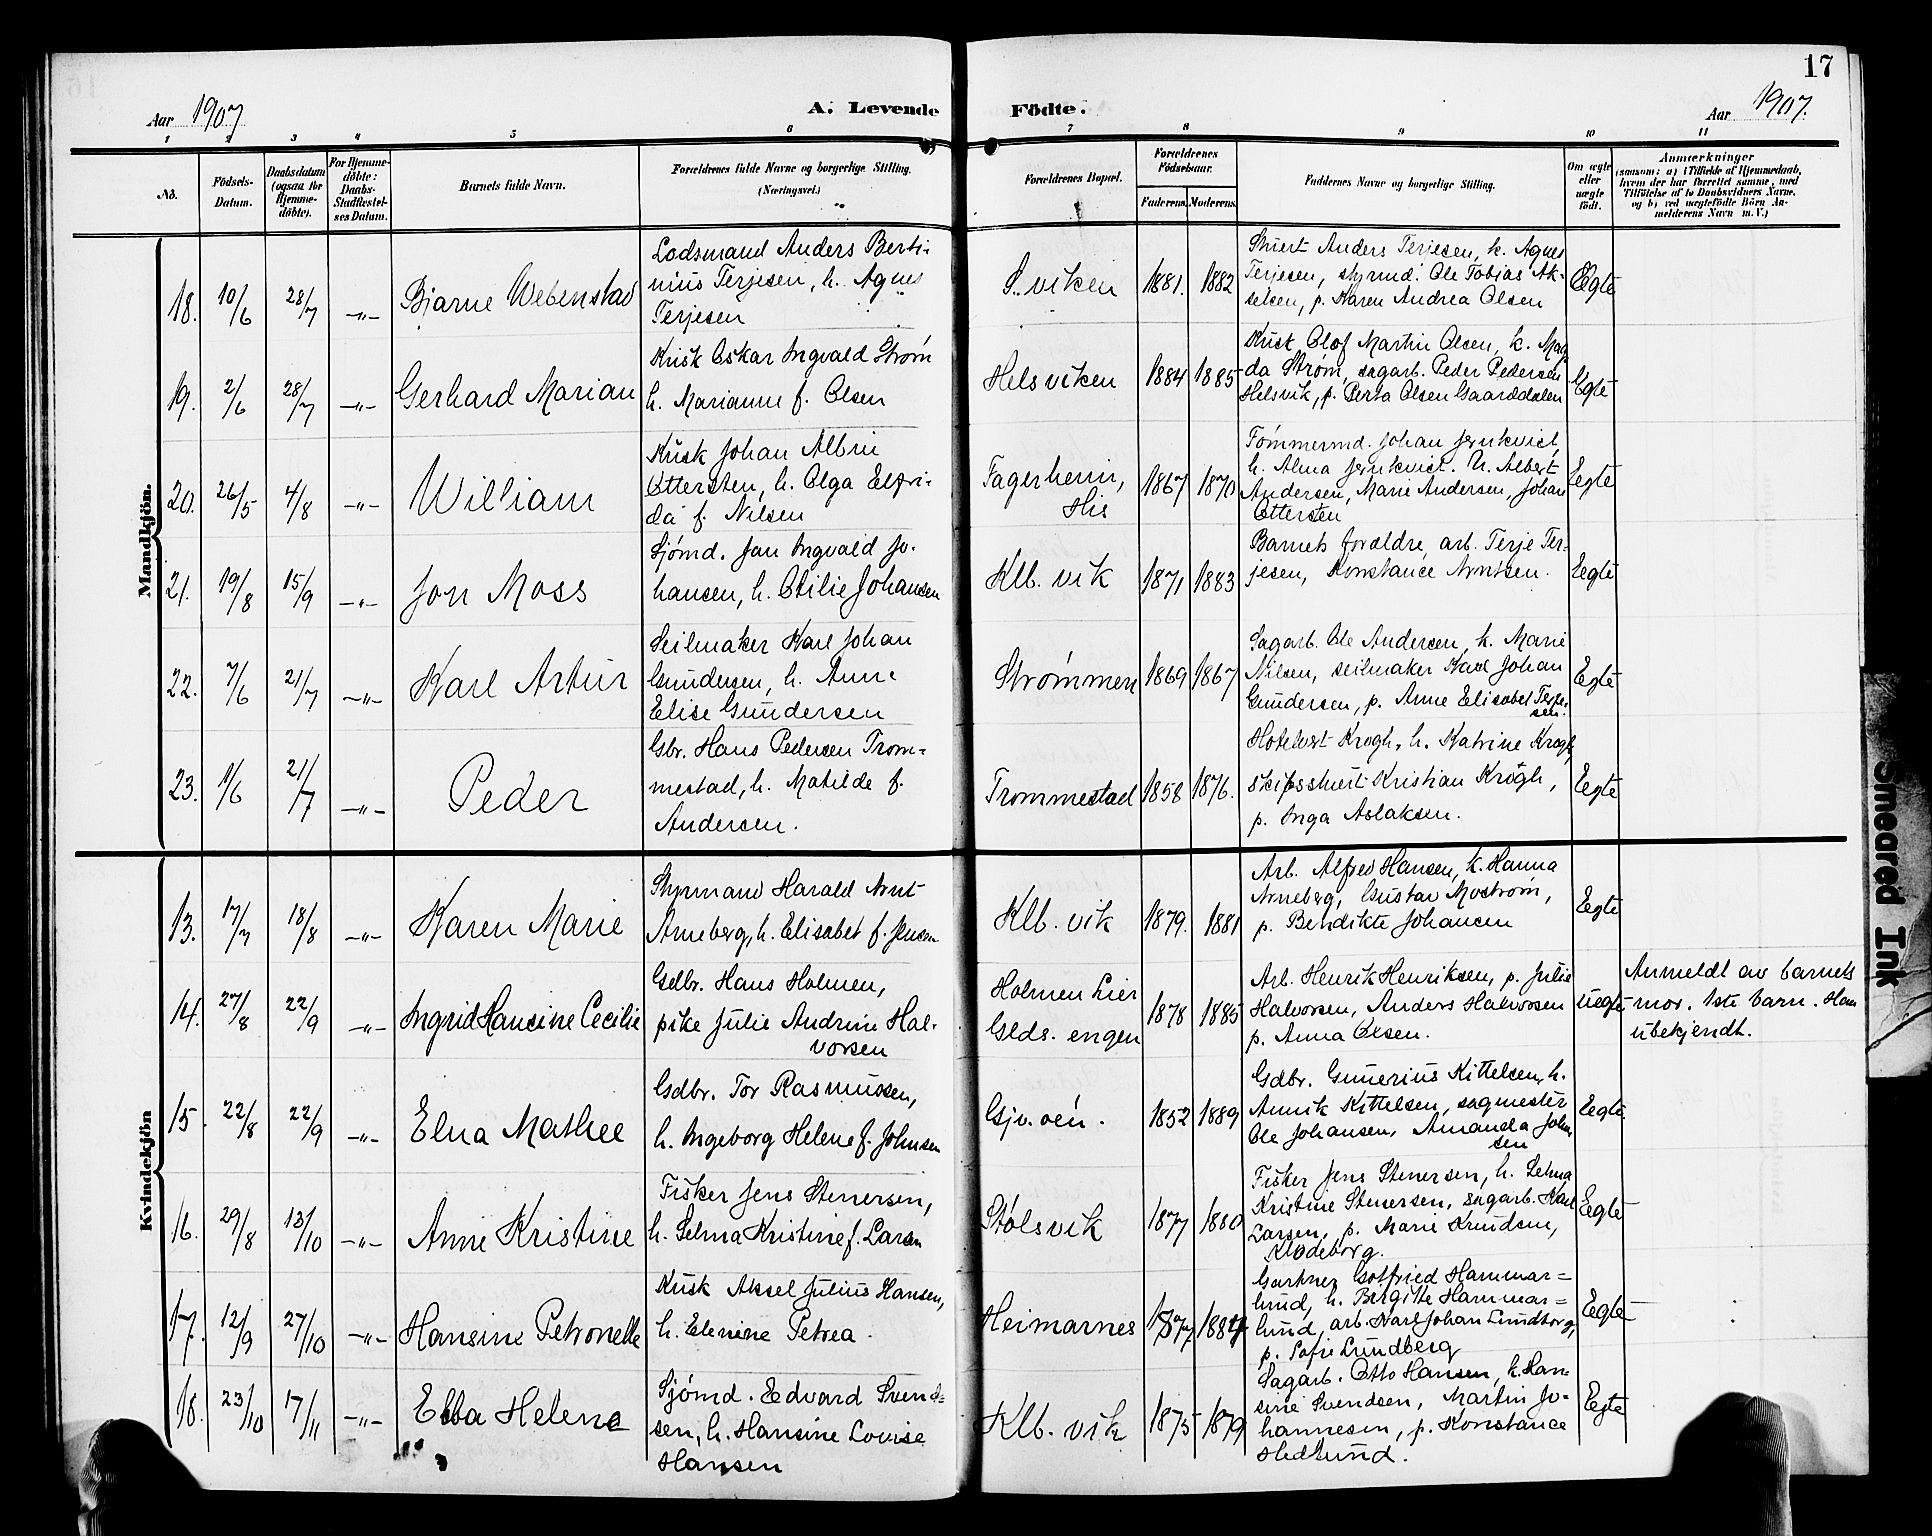 17
Aar 1907
A. Levende Födte.
Aar 1907.
1 2 3 4 5 6 7 8 9 10 11
No.
Födsels-Datum.
Daabsdatum (ogsaa for Hjemme-döbte).
For Hjemme-döbte: Daabs-Stadfæstel-ses Datum.
Barnets fulde Navn.
Forældrenes fulde Navne og borgerlige Stilling. (Næringsvei.)
Forældrenes Bopæl.
Forældrenes Födselsaar.
Faderens. Moderens.
Faddernes Navne og borgerlige Stilling.
Om ægte eller uægte födt.
Anmærkninger
(saasom: a) i Tilfælde af Hjemmedaab, hvem der har forrettet samme, med Tilföielse af to Daabsvidners Navne, og b) ved uægtefödte Börn An-melderens Navn m. V.)
Mandkjön.
18. 10/6 28/7 -"- Bjarne Webenstad
Lodsmand Anders Berti-
nius Terjesen, h. Agnes
Terjesen
S. viken 1881. 1882
Stuert Anders Terjesen, k. Agnes
Terjesen, styrmd. Ole Tobias Ak-
selsen, p. Karen Andrea Olsen
Egte
19. 2/6 28/7 -"- Gerhard Marian
Kusk Oskar Ingvald Strøm
h. Marianne f. Olsen
Helsviken 1884 1885
Kusk Olof Martin Olsen, k. Mag
da Strøm, sagarb. Peder Pedersen
Helsvik, p. Berta Olsen Gaarddalen
Egte
20. 26/5 4/8 -"- William
Kusk Johan Albin
Ottersten, h. Olga Elfri-
da f. Nilsen
Fagerheim,
His
1867 1870
Tømmermd. Johan Jernkvist,
h. Alma Jernkvist. U. Albert
Andersen, Marie Andersen, Johan
Ottersten
Egte
21. 19/8 15/9 -"- Jon Moss
Sjømd. Jan Ingvald Jo-
hansen, h. Otilie Johansen
Klb. vik 1871 1883
Barnets forældre, arb. Terje Ter-
jesen, Konstance Arntsen.
Egte
22. 7/6 21/7 -"- Karl Artur
Seilmaker Karl Johan
Gundersen, h. Anne
Elise Gundersen
Strømmen 1869 1867
Sagarb. Ole Andersen, k. Marie
Nilsen, seilmaker Karl Johan
Gundersen, p. Anne Elisabet Terje-
sen.
Egte
23. 1/6 21/7 -"- Peder
Gbr. Hans Pedersen Trom-
mestad, h. Matilde f.
Andersen.
Trommestad 1858 1876.
Hotelvert Krogh, h. Katrine Krogh
skibsstuert Kristian Krogh,
p. Inga Aslaksen.
Egte
Kvindekjön
13. 17/7 18/8 -"- Karen Marie
Styrmand Harald Arnt
Arneberg, h. Elisabet f. Jensen
Klb. vik 1879. 1881
Arb. Alfred Hansen, k. Hanna
Arneberg, Gustav Mostrøm,
p. Bendikte Johansen
Egte
14. 27/8 22/9 -"- Ingrid Hansine Cecilie
Gdbr. Hans Holmen,
pike Julie Andrine Hal-
vorsen
Holmen Lier
Glds. engen
1878 1885
Arb. Henrik Henriksen, p. Julie
Halvorsen, Anders Halvorsen
p. Anna Olsen.
uegte
Anmeldt av barnets
mor. 1ste barn. Han
ubekjendt.
15. 22/8 22/9 -"- Elna Mathee
Gdbr. Tor Rasmussen,
h. Ingeborg Helene f. Johnsen
Gjv. øen. 1852 1889
Gdbr. Gunerius Kittelsen, h.
Annik Kittelsen, sagmester
Ole Johansen, Amanda Johan
sen
Egte
16. 29/8 13/10 -"- Anne Kristine
Fisker Jens Stenersen,
h. Selma Kristine f. Larsen
Stølsvik 1877 1880
Fisker Jens Stenersen, h. Selma
Kristine Stenersen, sagarb. Karl
Larsen, p. Marie Knudsen,
Klodeborg.
Egte
17. 12/9 27/10 -"- Hansine Petronelle
Kusk Aksel Julius Hansen,
h. Elenine Petrea.
Heimarnes 1877 1884
Gartner Gotfried Hammar-
lund, h. Birgitte Hammar-
lund, arb. Karl Johan Lundborg,
p. Sofie Lundberg
Egte
18. 23/10 17/11 -"- Ebba Helene
Sjømd. Edvard Svend-
sen, h. Hansine Lovise
Hansen
Klb. vik 1875 1879
Sagarb. Otto Hansen, k. Han-
sine Svendsen, Martin Jo-
hannesen, p. Konstance
Hedlund.
Egte
Smeared Ink